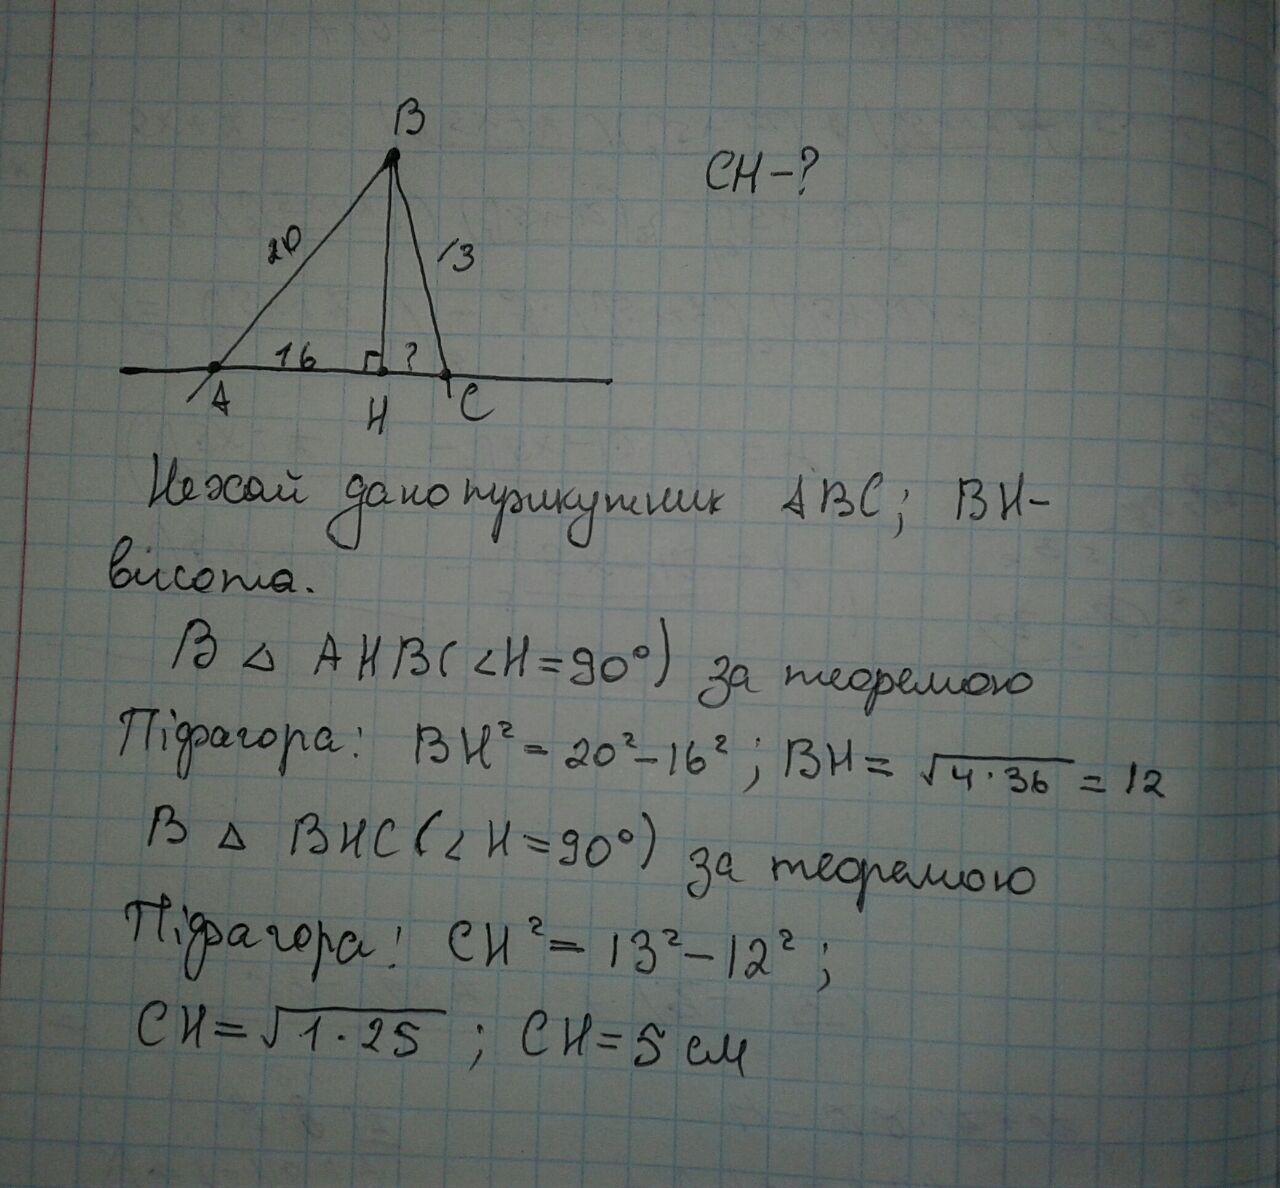 B
CH-?
20
13
16
?
A
H
C
Нехай дано трикутник ABC; BH-
висота.
В △ AHB(∠H=90°) за теоремою
Піфагора: BH²=20²-16²; BH=√4·36=12
В △ BHC(∠H=90°) за теоремою
Піфагора: CH²=13²-12²;
CH=√1·25; CH=5 см